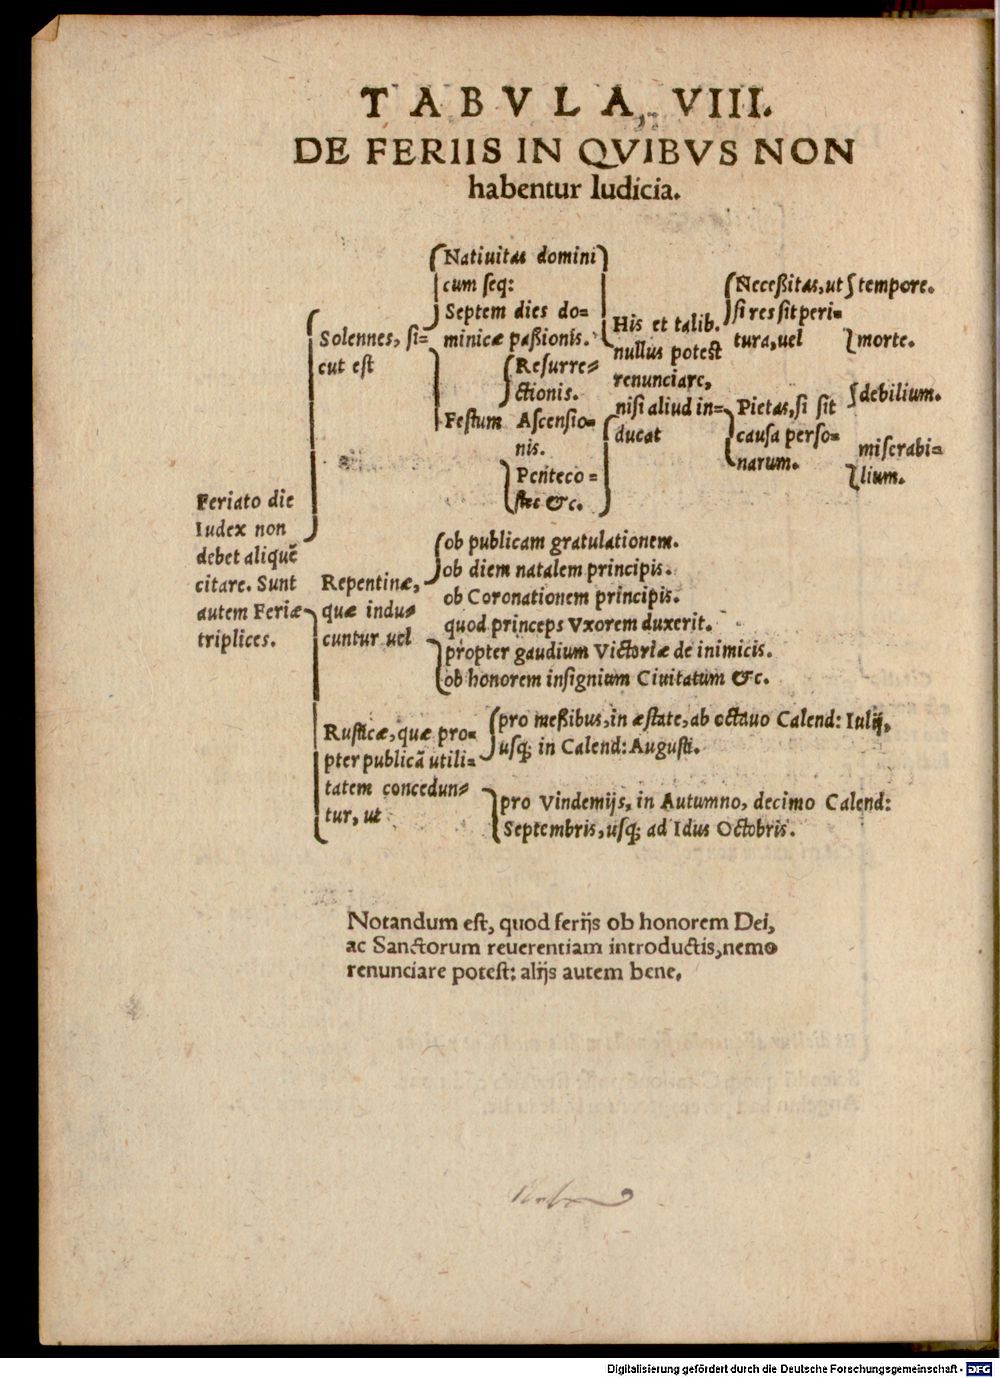 TABVLA, VIII.
DE FERIIS IN QVIBVS NON
habentur Iudicia.
Feriato die
Iudex non
debet aliquē
citare. Sunt
autem Feriæ
triplices.
Solennes, si=
cut est
Natiuitas domini
cum seq:
Septem dies do=
minicæ paßionis.
Festum
Resurre=
ctionis.
Ascensio=
nis.
Penteco=
stes &c.
His et talib.
nullus potest
renunciare,
nisi aliud in=
ducat
Neceßitas, ut
si res sit peri=
tura, uel
tempore.
morte.
Pietas, si sit
causa perso=
narum.
debilium.
miserabi=
lium.
Repentinæ,
quæ indu=
cuntur uel
ob publicam gratulationem.
ob diem natalem principis.
ob Coronationem principis.
quod princeps Vxorem duxerit.
propter gaudium Victoriæ de inimicis.
ob honorem insignium Ciuitatum &c.
Rusticæ, quæ pro=
pter publicā utili=
tatem concedun=
tur, ut
pro meßibus, in æstate, ab octauo Calend: Iulij,
usq; in Calend: Augusti.
pro Vindemijs, in Autumno, decimo Calend:
Septembris, usq; ad Idus Octobris.
Notandum est, quod ferijs ob honorem Dei,
ac Sanctorum reuerentiam introductis, nemo
renunciare potest: alijs autem bene.
Digitalisierung gefördert durch die Deutsche Forschungsgemeinschaft - DFG